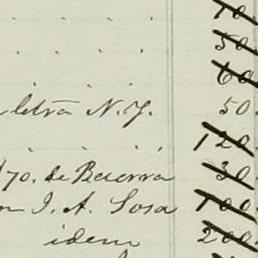 10
. . . . 50
. . . 60
letra N.Y. 50.
. . . . 120
170. de Becerra 30
I. A. Sosa 100
idem 200